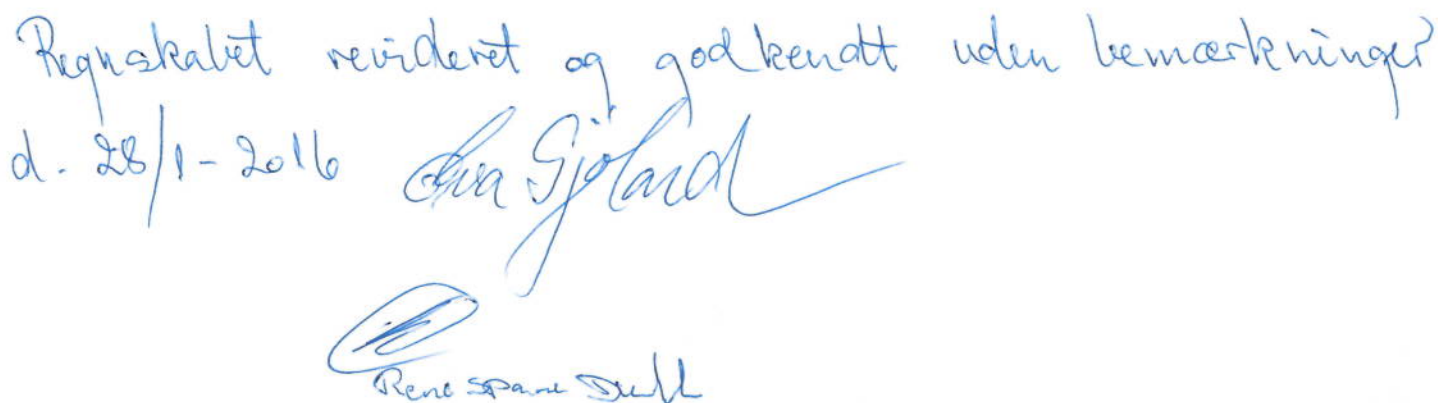 Regnskabet revideret og godkendt uden bemærkninger
d. 28/1-2016 Eva Sjøland
Rene